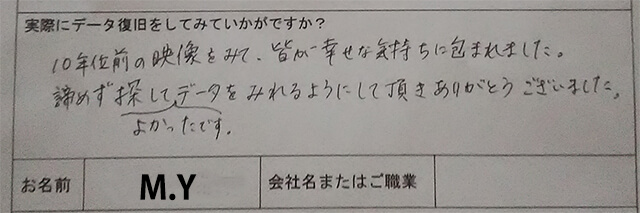 実際にデータ復旧をしてみていかがですか？
10年位前の映像をみて、皆が幸せな気持ちに包まれました。
諦めず探してデータをみれるようにして頂きありがとうございました。
よかったです。
お名前 M.Y 会社名またはご職業